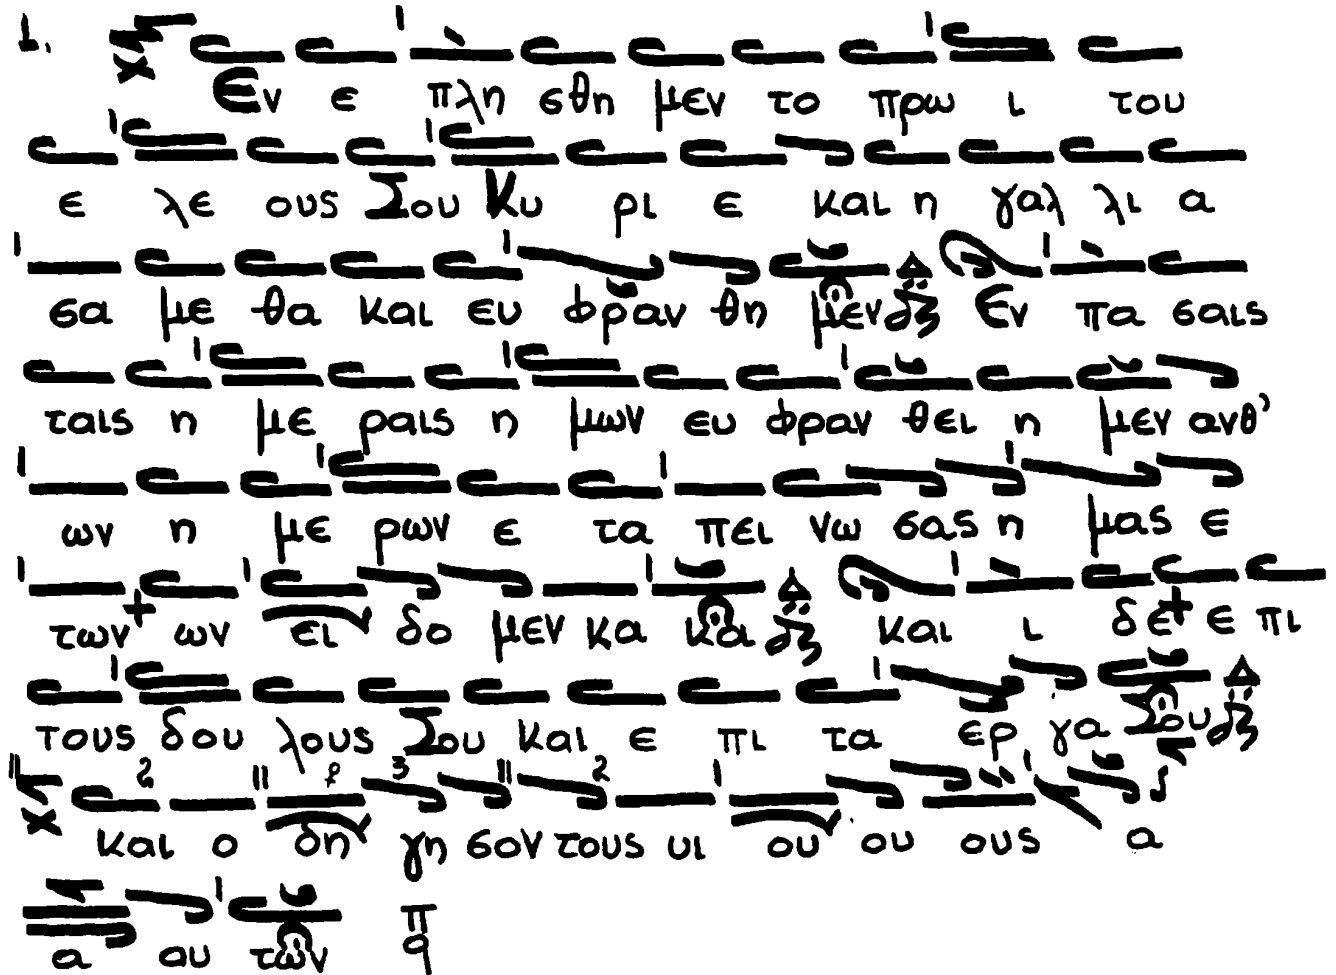 1. Εν ε πλη σθη μεν το πρω ι του
ε λε ους Σου Κυ ρι ε και η γαλ λι α
σα με θα και ευ φραν θη μεν Εν πα σαις
ταις η με ραις η μων ευ φραν θει η μεν ανθ'
ων η με ρων ε τα πει νω σας η μας ε
των ων ει δο μεν κα κα και ι δε ε πι
τους δου λους Σου και ε πι τα ερ γα Σου
και ο δη γη σον τους υι ου ου ους α
α αυ των π q